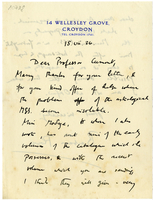 14 WELLESLEY GROVE,
CROYDON
15. vii. 24.
Dear Professor Cumont,
Many thanks for your letter, &
for your kind offer of help when
the problem of the astrological
MSS. become insoluble.
Miss , to whom I also
work, has sent me the early
volumes of the catalogue which she
possesses, & with the recent
volume which you are sending
I think they will give a very